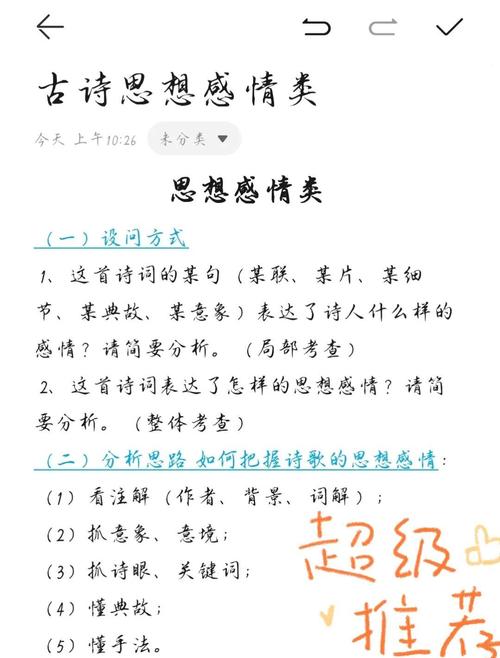 古诗思想感情类
今天 上午10:26 未分类
思想感情类
（一）设问方式
1、这首诗词的某句（某联、某片、某细
节、某典故、某意象）表达了诗人什么样的
感情？请简要分析。（局部考查）
2、这首诗词表达了怎样的思想感情？请简
要分析。（整体考查）
（二）分析思路 如何把握诗歌的思想感情：
（1）看注解（作者、背景、词解）；
（2）抓意象、意境；
（3）抓诗眼、关键词；
（4）懂典故；
（5）懂手法。
超级
推荐